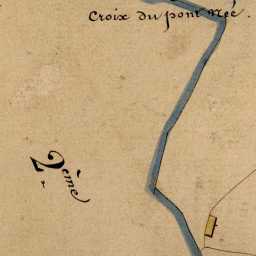 Croix du pont Née.
2ème